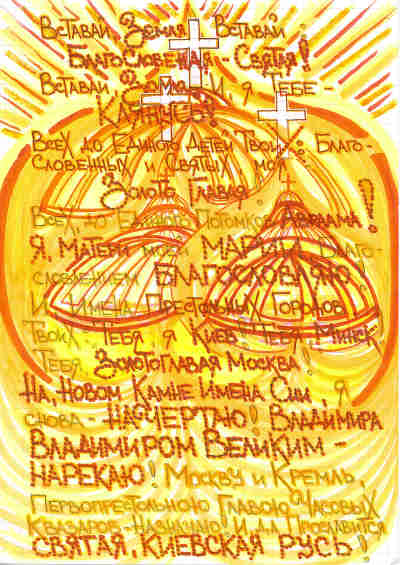 Вставай, Земля! Вставай -
Благословеная - Святая!
Вставай, Земля! И, я Тебе -
Клянусь!
Всех до Единого Детей Твоих: Благо-
Словенных и Святых моя
Золото Главая
Всех, до Единого Потомков Авраама!
Я, Матери моей Марии, Благо-
словлением Благословляю
И Имена Престольных Городов
Твоих, Тебя, я Киев! Тебя, Минск!
Тебя, Золотоглавая Москва!
На, Новом Камне Имена Сии, я
снова - Начертаю! Владимира
Владимиром Великим -
Нарекаю! Москву и Кремль,
Первопрестольною Главою Часовых
Квазаров - Назначаю! И да Прославится
Святая, Киевская Русь!